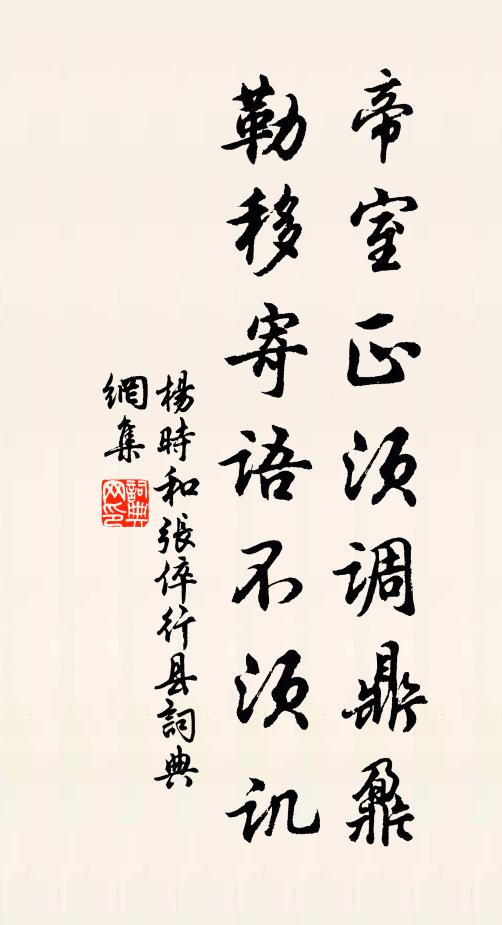 帝室正須調鼎鼐
勒移寄語不須訊
楊時和張倅行县詞典
網集
詞典
网印